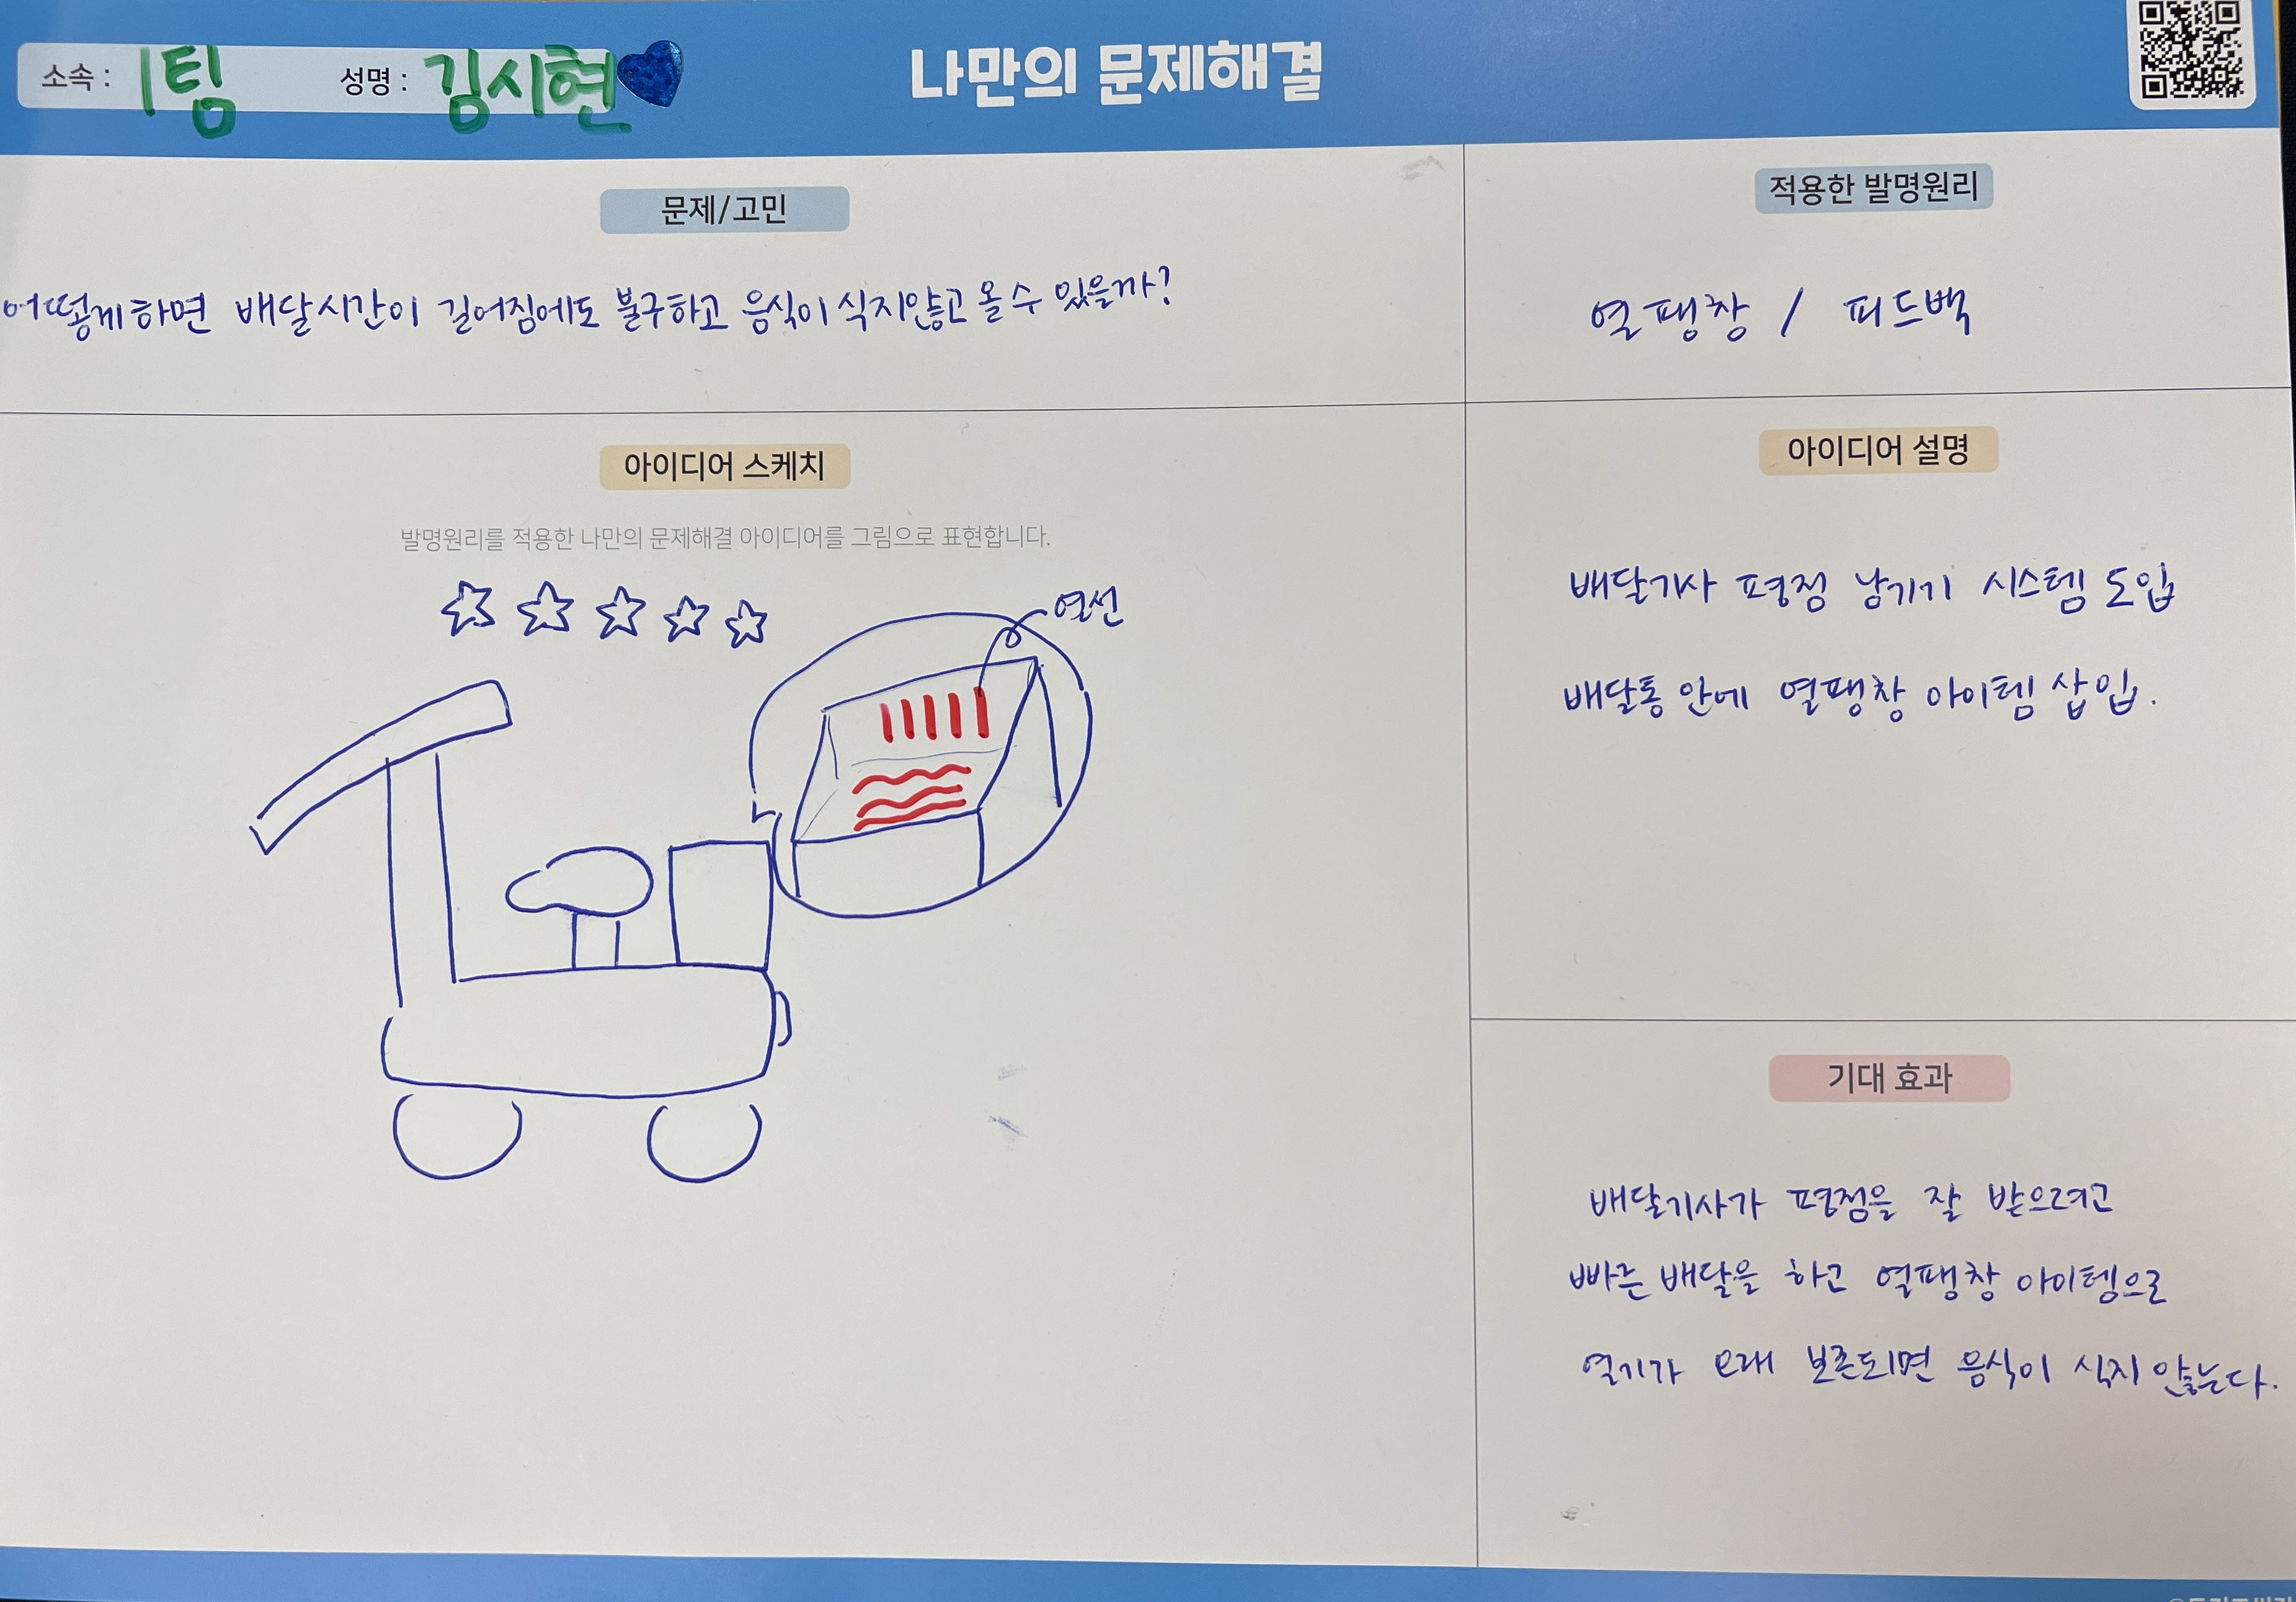 소속 : 1팀 성명 : 김시현
나만의 문제해결
문제/고민
어떻게하면 배달시간이 길어짐에도 불구하고 음식이 식지않고 올 수 있을까?
적용한 발명원리
열팽창 / 피드백
아이디어 스케치
발명원리를 적용한 나만의 문제해결 아이디어를 그림으로 표현합니다.
열선
아이디어 설명
배달기사 평점 남기기 시스템 도입
배달통 안에 열팽창 아이템 삽입.
기대 효과
배달기사가 평점을 잘 받으려고
빠른 배달을 하고 열팽창 아이템으로
열기가 오래 보존되면 음식이 식지 않는다.